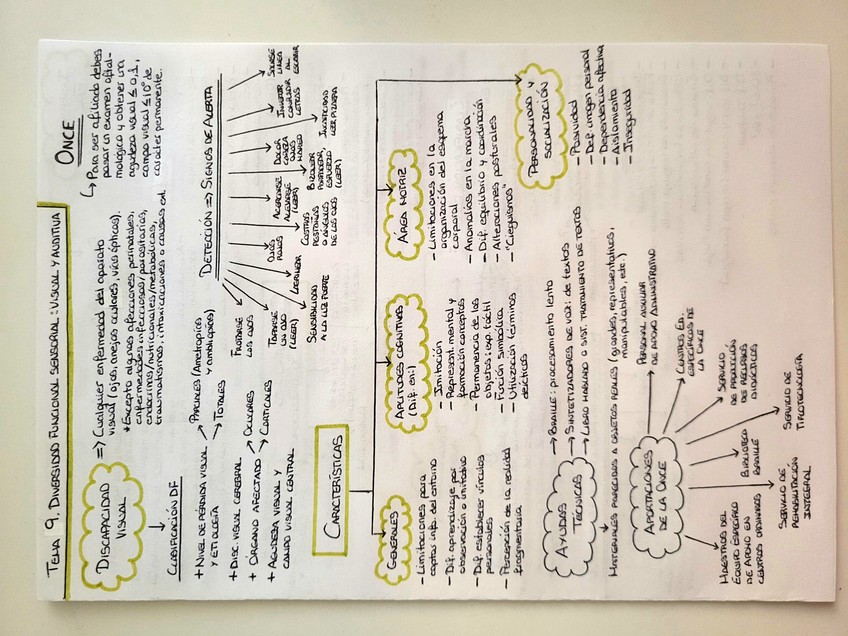 TEMA 9. DIVERSIDAD FUNCIONAL SENSORIAL: VISUAL Y AUDITIVA
DISCAPACIDAD
VISUAL
=> Cualquier enfermedad del aparato
visual (ojos, anejos oculares, vías ópticas).
* Excepto algunas afecciones perinatales,
enfermedades infecciosas/parasitarias,
endocrinas/nutricionales/metabólicas,
traumatismos, intoxicaciones o causas ext.
ONCE
↳ Para ser afiliado debes
pasar un examen oftal-
mológico y obtener una
agudeza visual ≤ 0,1,
campo visual ≤ 10° de
carácter permanente.
CLASIFICACIÓN DF
+ NIVEL DE PÉRDIDA VISUAL
Y ETIOLOGÍA
PARCIALES (Ametropías
y ambliopías)
TOTALES
+ DISC. VISUAL CEREBRAL
+ ÓRGANO AFECTADO
OCULARES
CORTICALES
+ AGUDEZA VISUAL Y
CAMPO VISUAL CENTRAL
DETECCIÓN => SIGNOS DE ALERTA
FROTARSE
LOS OJOS
TAPARSE
UN OJO
(LEER)
SENSIBILIDAD
A LA LUZ FUERTE
LAGRIMEAR
OJOS
ROJOS
COSTRAS
PESTAÑAS
O ÁNGULOS
DE LOS OJOS
ACERCARSE
ALEJARSE
(LEER)
BIZQUEAR
PARPADEAR,
ESFUERZO
(LEER)
DOLOR
CABEZA
OJOS
MAREO
INCAPACIDAD
LEER PIZARRA
INVERTIR
CONFUNDIR
LETRAS
SALIRSE
LÍNEA
AL
ESCRIBIR
CARACTERÍSTICAS
GENERALES
- Limitaciones para
captar info. del entorno
- Dif. aprendizaje por
observación o imitativo
- Dif. establecer vínculos
personales
- Percepción de la realidad
fragmentaria
APTITUDES COGNITIVAS
(Dif. en:)
- Imitación
- Represent. mental y
formación conceptos
- Permanencia de los
objetos: cap. táctil
- Función simbólica
- Utilización términos
deícticos
ÁREA MOTRIZ
- Limitaciones en la
organización del esquema
corporal
- Anomalías en la marcha
- Dif. equilibrio y coordinación
- Alteraciones posturales
- "Cieguismos"
PERSONALIDAD Y
SOCIALIZACIÓN
- Pasividad
- Def. imagen personal
- Dependencia afectiva
- Aislamiento
- Inseguridad
AYUDAS
TÉCNICAS
→ BRAILLE: procesamiento lento
→ SINTETIZADORES DE VOZ: de textos
→ LIBRO HABLADO O SIST. TRATAMIENTO DE TEXTOS
MATERIALES PARECIDOS A OBJETOS REALES (grandes, representativos,
manipulables, etc.)
APORTACIONES
DE LA ONCE
MAESTROS DEL
EQUIPO ESPECÍFICO
DE APOYO EN
CENTROS ORDINARIOS
SERVICIO DE
REHABILITACIÓN
INTEGRAL
BIBLIOTECA
BRAILLE
SERVICIO DE
TIFLOTECNOLOGÍA
SERVICIO
DE PRODUCCIÓN
DE RECURSOS
DIDÁCTICOS
CENTROS EN.
ESPECÍFICOS DE
LA ONCE
PERSONAL AUXILIAR
DE APOYO ADMINISTRATIVO